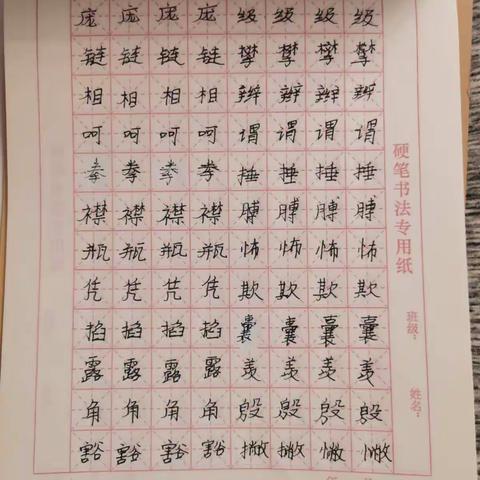 庞庞庞庞级级级级
链链链链攀攀攀攀
相相相相辨辨辨辨
呵呵呵呵谓谓谓谓
捶捶捶捶
襟襟襟襟膊膊膊膊
瓶瓶瓶瓶怖怖怖怖
凭凭凭凭欺欺欺欺
掐掐掐掐囊囊囊囊
露露露露羡羡羡羡
角角角角殷殷殷殷
豁豁豁豁撇撇
硬笔书法专用纸
班级：
姓名：